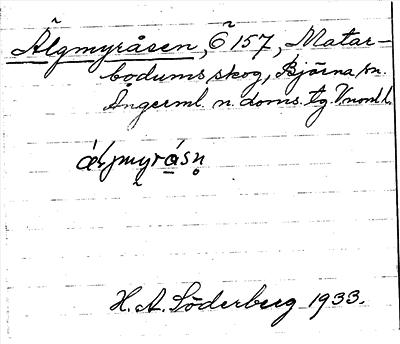 Älgmyråsen, Ö 157, Matar-
bodums skog, Björna sn.
Ångerml. n. doms. tg. Vnorrl. l.
H. A. Söderberg 1933.